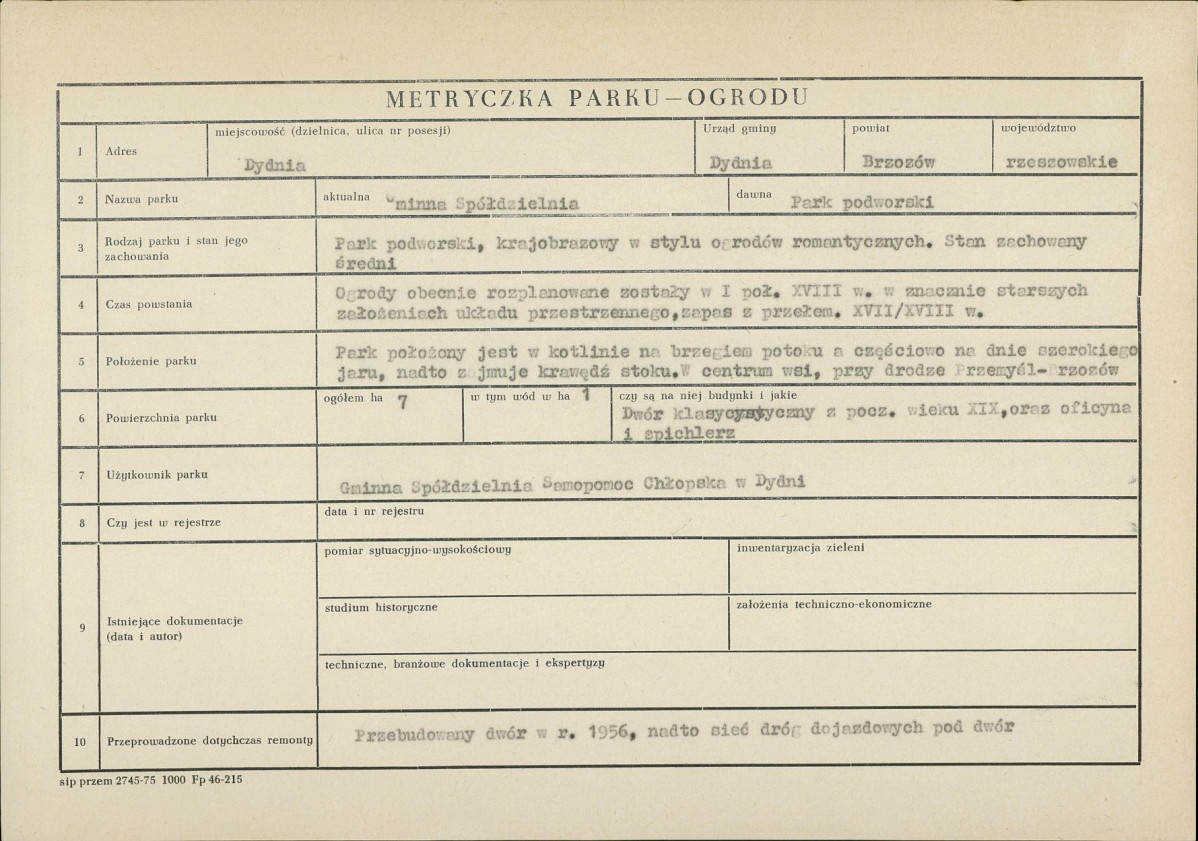 METRYCZKA PARKU – OGRODU
1 Adres
miejscowość (dzielnica, ulica nr posesji)
Dydnia
Urząd gminy
Dydnia
powiat
Brzozów
województwo
rzeszowskie
2 Nazwa parku
aktualna Gminna Spółdzielnia
dawna Park podworski
3 Rodzaj parku i stan jego
zachowania
Park podworski, krajobrazowy w stylu ogrodów romantycznych. Stan zachowany
średni
4 Czas powstania
Ogrody obecnie rozplanowane zostały w I poł. XVIII w. w znacznie starszych
założeniach układu przestrzennego,zapas z przełem. XVII/XVIII w.
5 Położenie parku
Park położony jest w kotlinie na brzegiem potoku a częściowo na dnie szerokiego
jaru, nadto zajmuje krawędź stoku.W centrum wsi, przy drodze Przemyśl-Brzozów
6 Powierzchnia parku
ogółem ha 7
w tym wód w ha 1
czy są na niej budynki i jakie
Dwór klasycystyczny z pocz. wieku XIX,oraz oficyna
i spichlerz
7 Użytkownik parku
Gminna Spółdzielnia Samopomoc Chłopska w Dydni
8 Czy jest w rejestrze
data i nr rejestru
9 Istniejące dokumentacje
(data i autor)
pomiar sytuacyjno-wysokościowy
inwentaryzacja zieleni
studium historyczne
założenia techniczno-ekonomiczne
techniczne, branżowe dokumentacje i ekspertyzy
10 Przeprowadzone dotychczas remonty
Przebudowany dwór w r. 1956, nadto sieć dróg dojazdowych pod dwór
sip przem 2745-75 1000 Fp 46-215